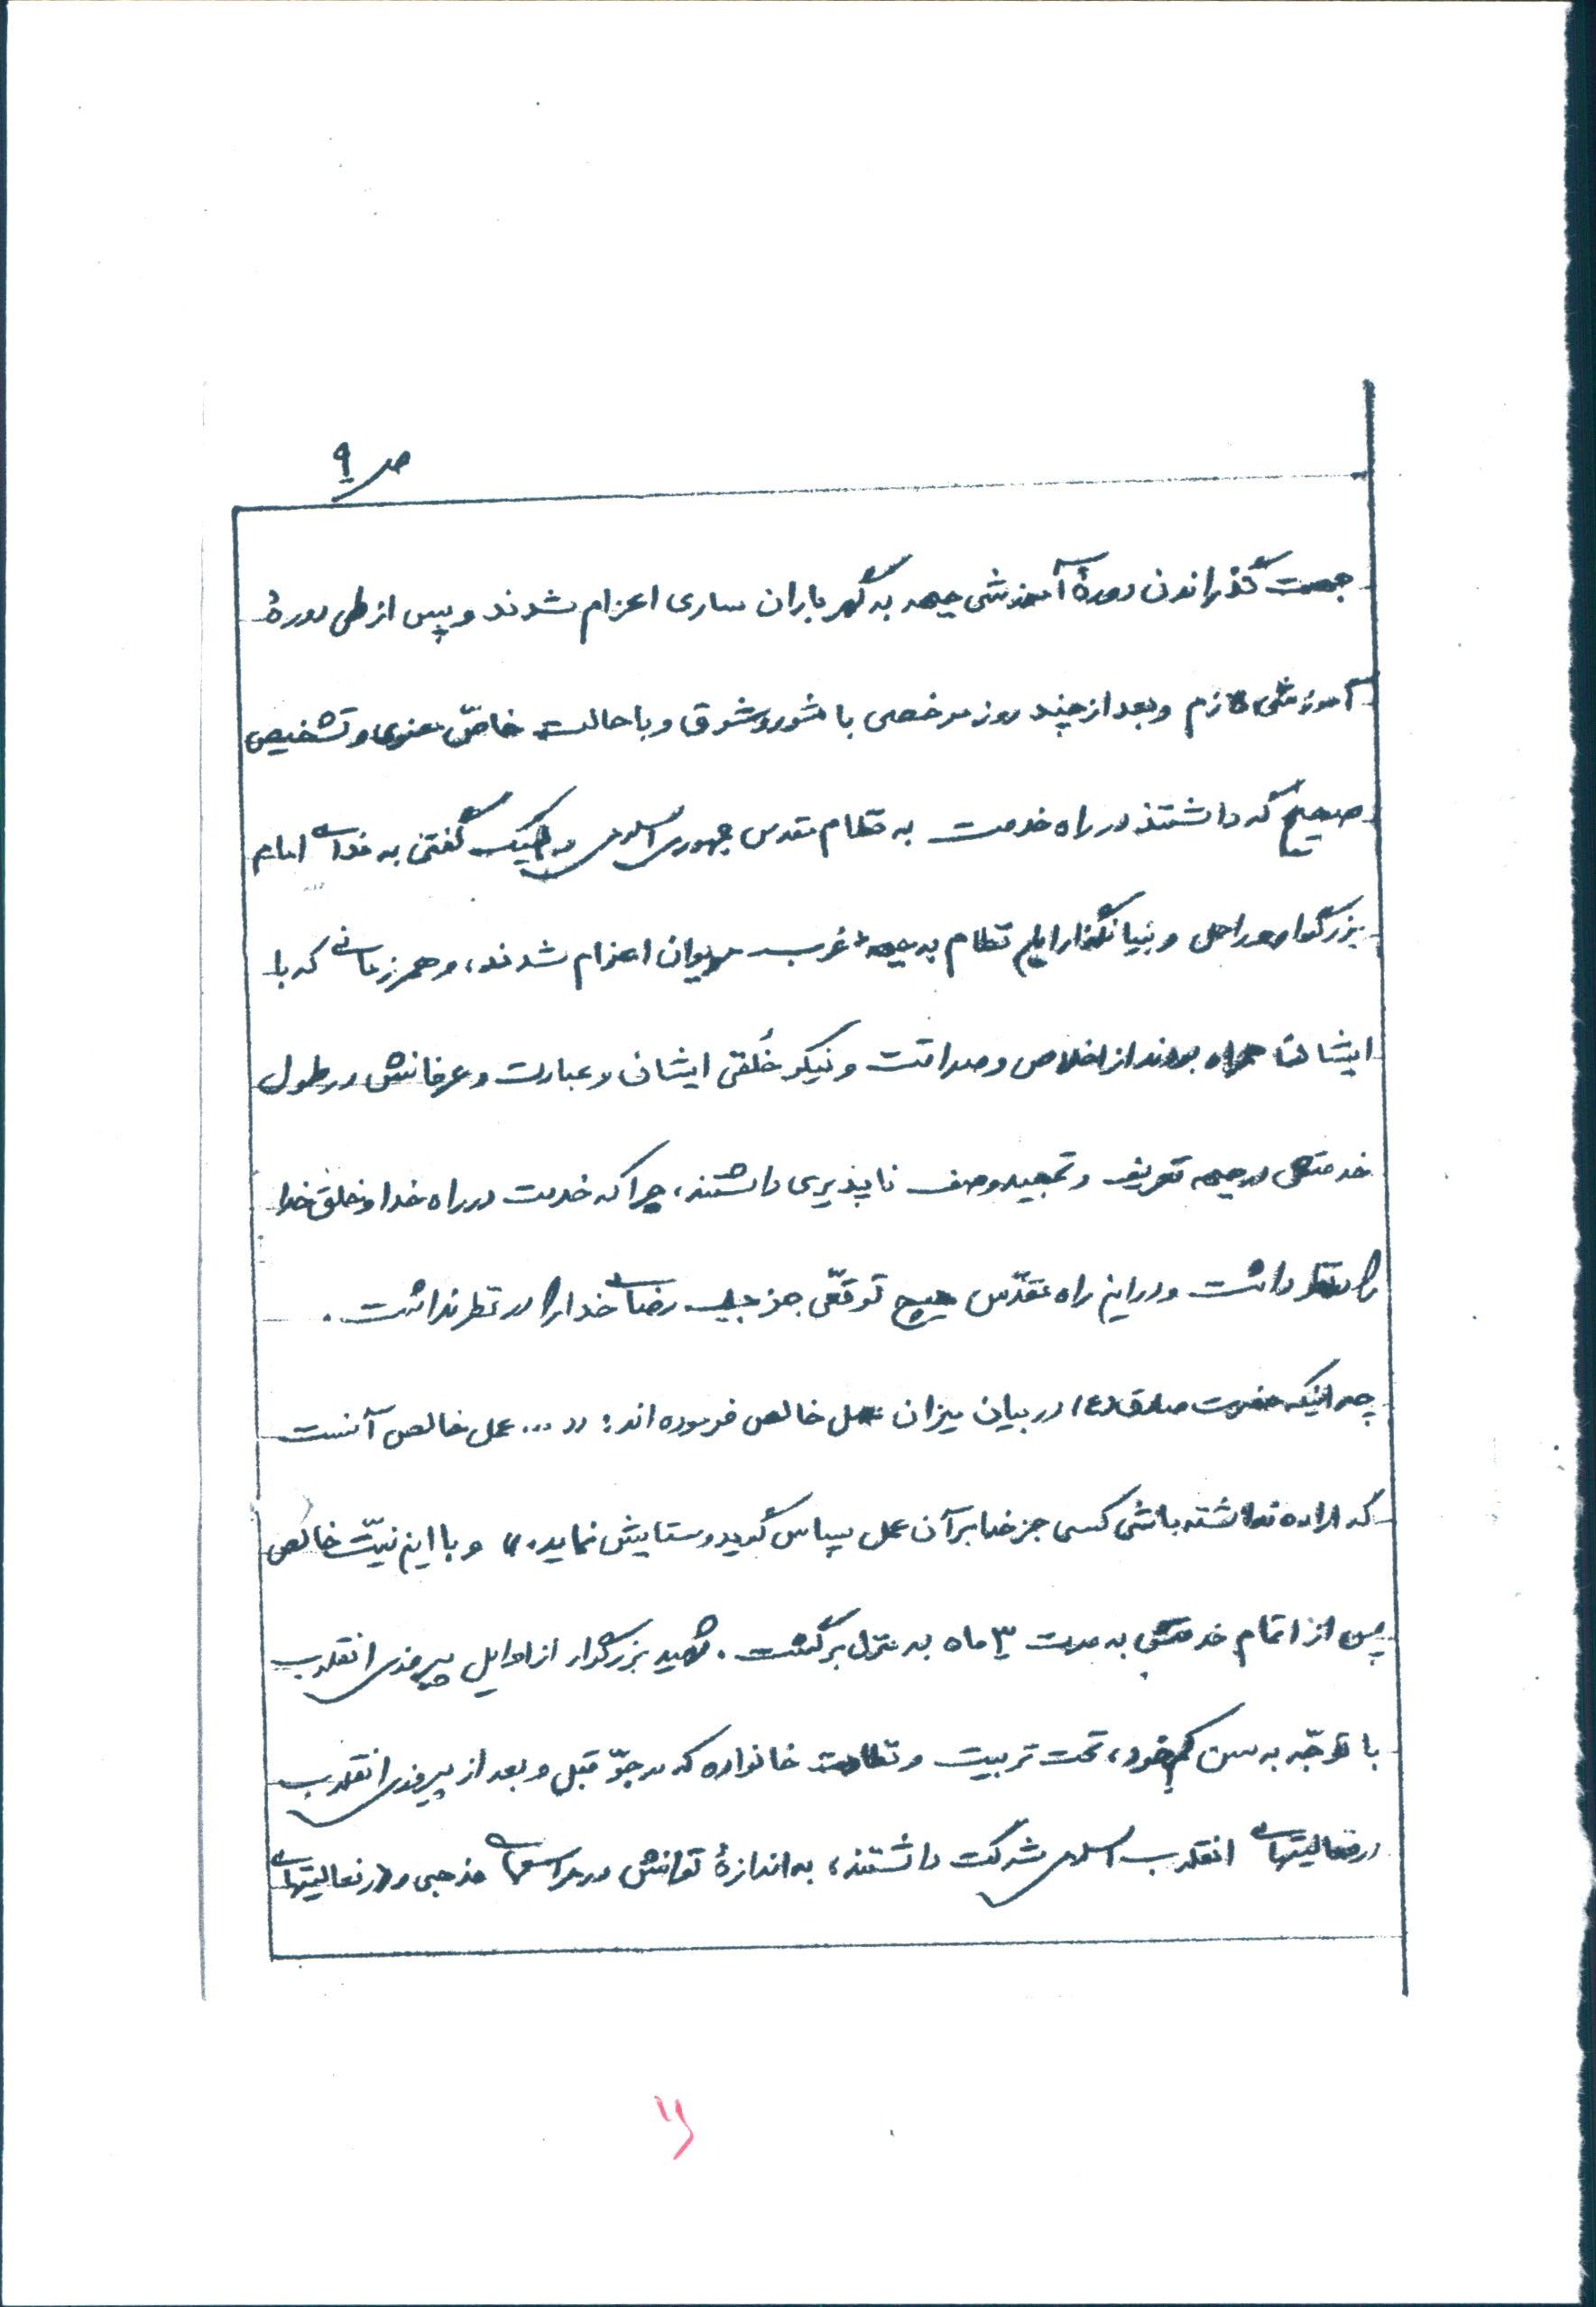 ص ۹
جهت گذراندن دورهٔ آموزشی جبهه به گهرباران ساری اعزام شدند و پس از طی دورهٔ
آموزشی لازم و بعد از چند روز مرخصی با شور و شوق و با حالت خاصّ معنوی و تشخیص
صحیح که داشتند در راه خدمت به نظام مقدس جمهوری اسلامی و لبیک گفتن به ندای امام
بزرگوار و راحل و بنیانگذار این نظام به جبههٔ غرب مریوان اعزام شدند، و همرزمانی که با
ایشان همراه بودند از اخلاص و صداقت و نیکو خُلقی ایشان و عبادت و عرفانش در طول
خدمتش در جبهه تعریف و تمجید وصف ناپذیری داشتند، چرا که خدمت در راه خدا و خلق خدا
را در نظر داشت و در این راه مقدّس هیچ توقّعی جز جلب رضای خدا را در نظر نداشت.
چه اینکه حضرت صادق (ع) در بیان میزان عمل خالص فرموده اند: «... عمل خالص آنست
که اراده نداشته باشی کسی جز خدا بر آن عمل سپاس گوید و ستایش نماید.» و با این نیّت خالص
پس از اتمام خدمتش به مدت ۳ ماه به منزل برگشت. شهید بزرگوار از اوایل پیروزی انقلاب
با توجّه به سن کم خود، تحت تربیت و نظارت خانواده که در جوّ قبل و بعد از پیروزی انقلاب
در فعالیتهای انقلاب اسلامی شرکت داشتند، به اندازهٔ توانش در مراسمهای مذهبی و در فعالیتهای